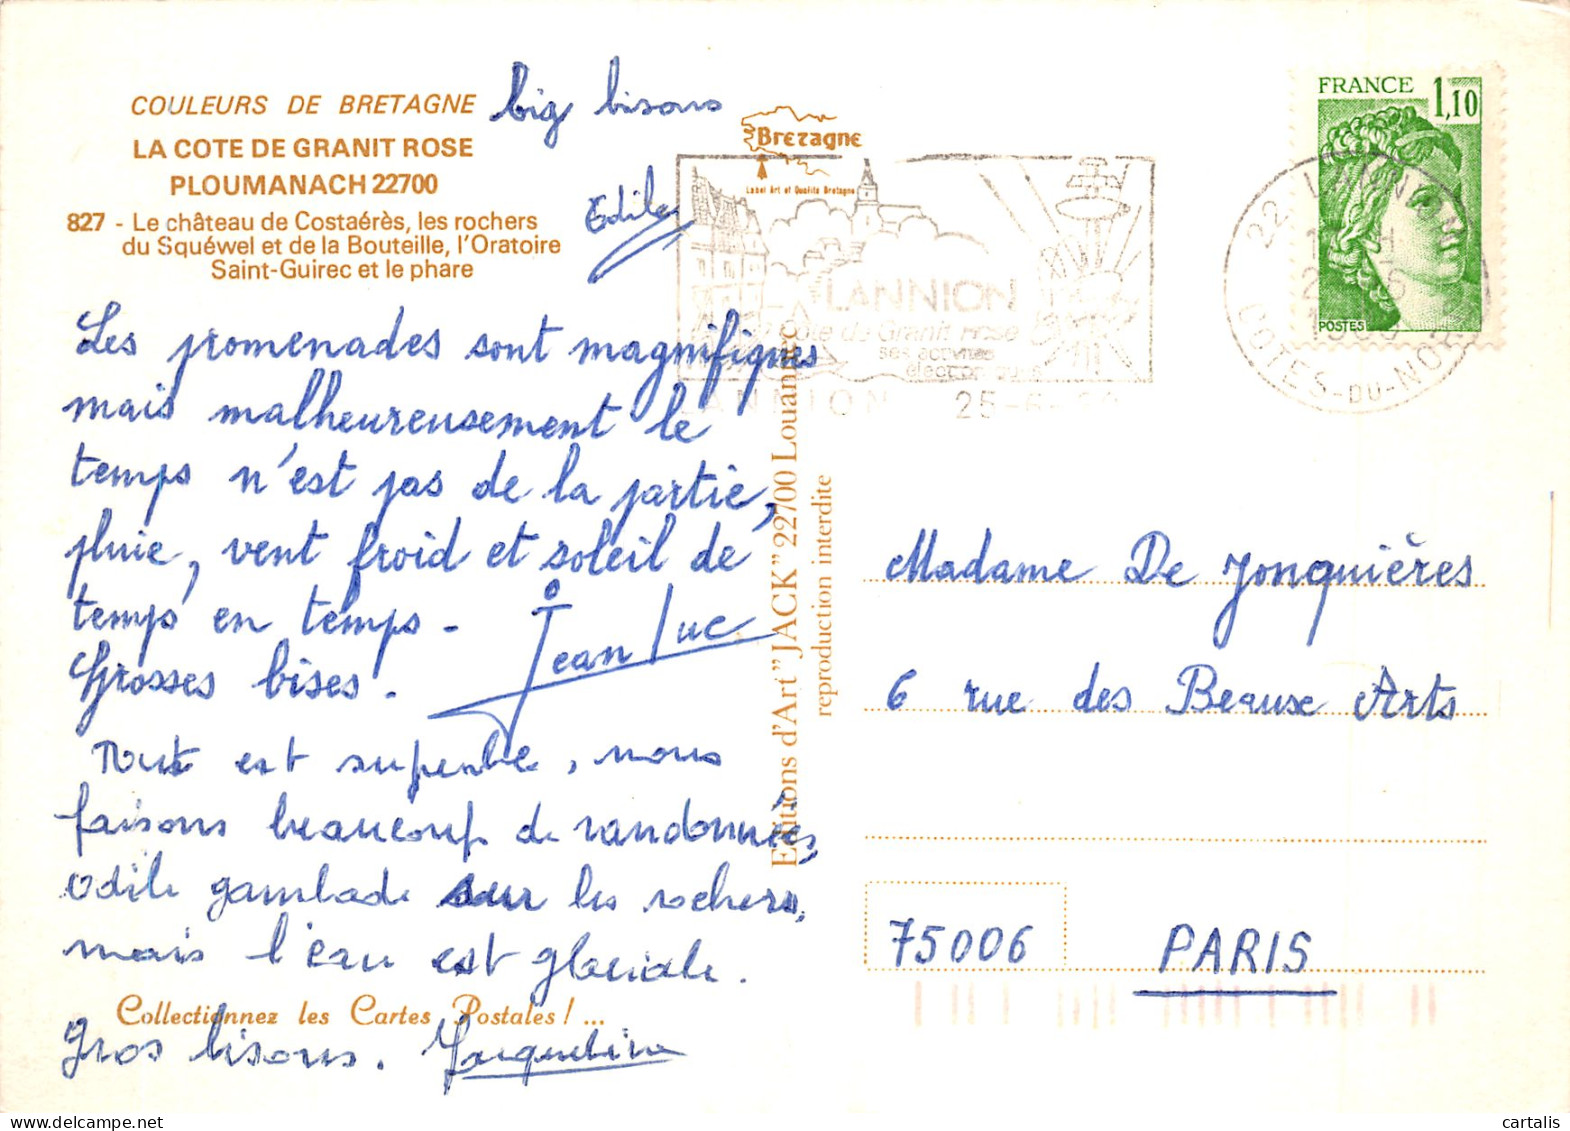 COULEURS DE BRETAGNE
LA COTE DE GRANIT ROSE
PLOUMANACH 22700
827 - Le château de Costaérès, les rochers
du Squéwel et de la Bouteille, l'Oratoire
Saint-Guirec et le phare
big bisous
Odile
Les promenades sont magnifiques
mais malheureusement le
temps n'est pas de la partie,
pluie, vent froid et soleil de
temps en temps -
Grosses bises. Jean Luc
Tout est superbe, nous
faisons beaucoup de randonnées,
Odile gambade sur les rochers,
mais l'eau est glaciale.
Collectionnez les Cartes Postales ! ...
gros bisous. Jacqueline
Bretagne
Label Art et Qualité Bretagne
LANNION
Côte de Granit rose
ses activités
électroniques
LANNION 25-6-
Editions d'Art "JACK" 22700 Louannec
reproduction interdite
FRANCE 1,10
POSTES
22 LANNION
COTES-DU-NORD
Madame De Jonquières
6 rue des Beaux Arts
75006 PARIS
cartalis